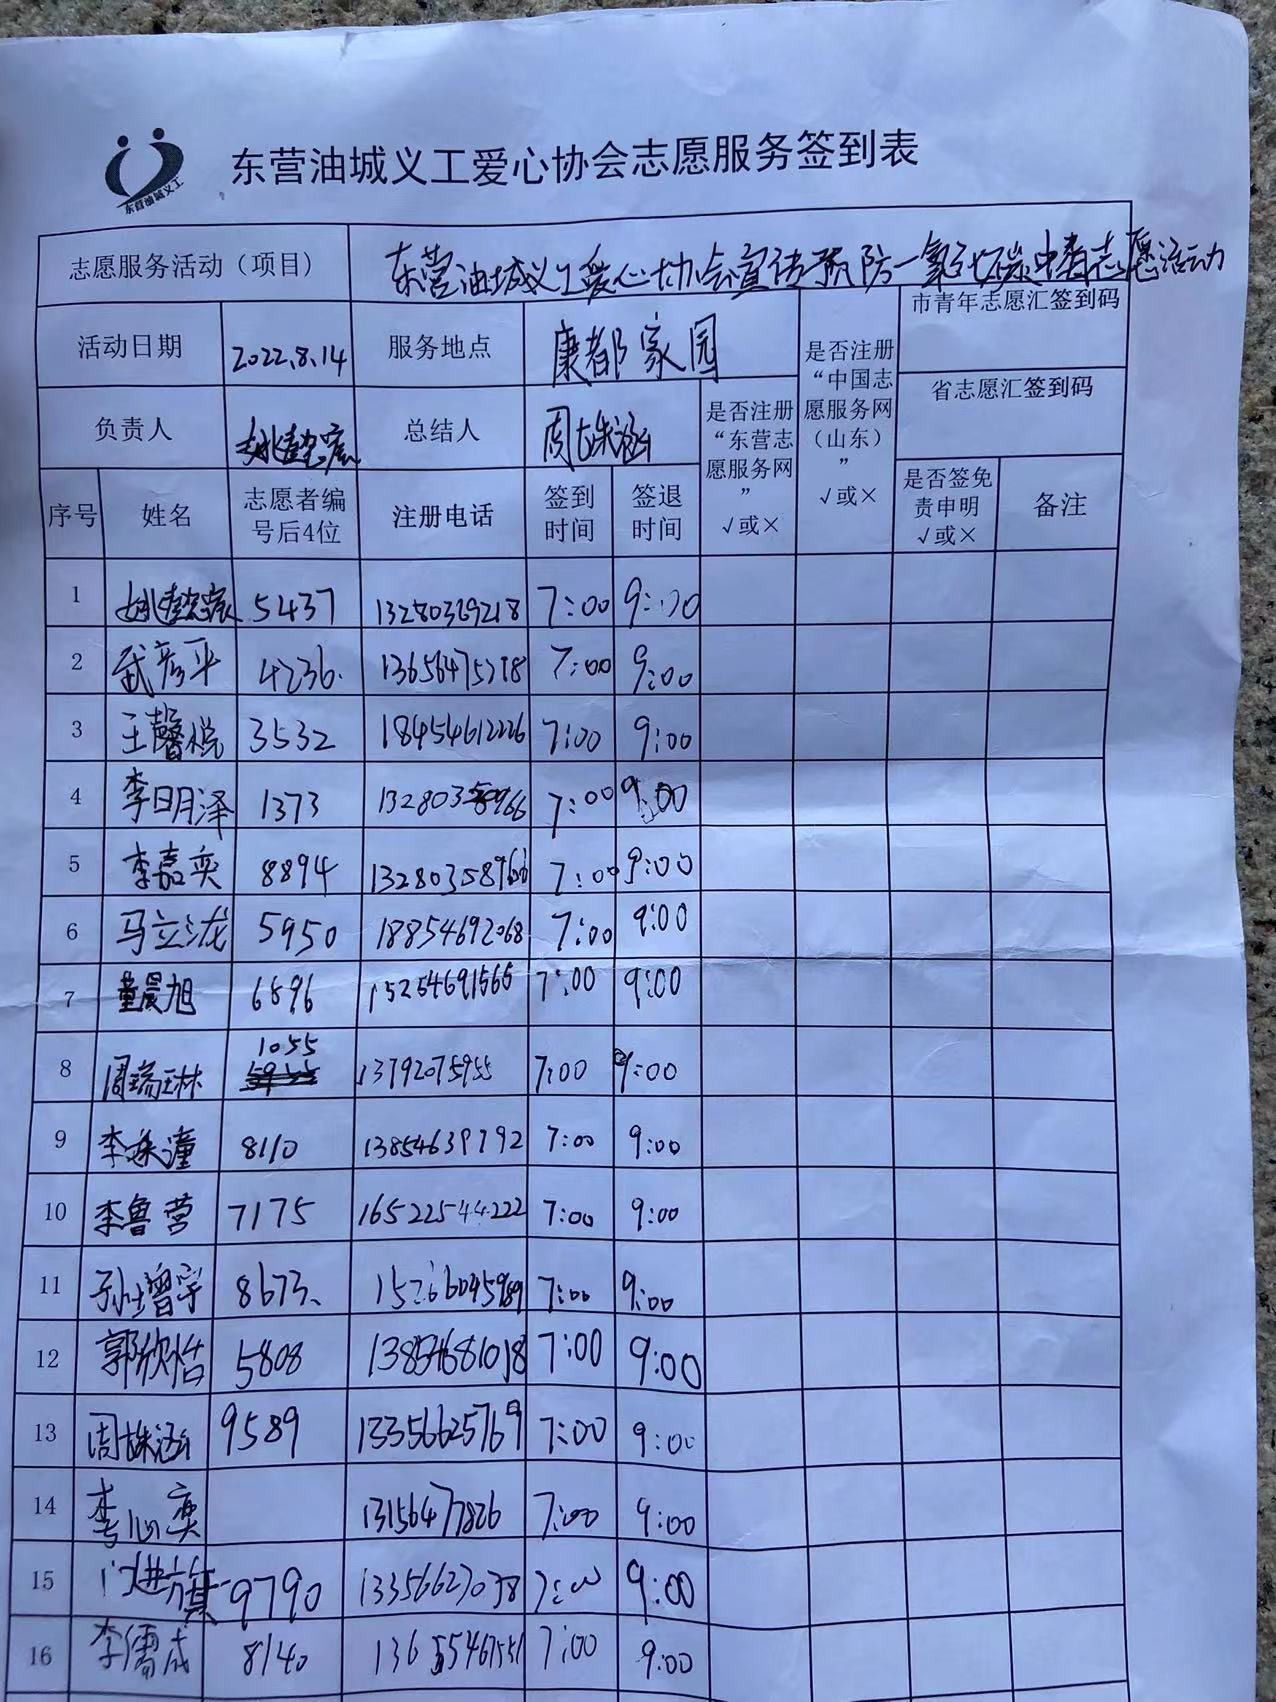 东营油城义工
东营油城义工爱心协会志愿服务签到表
志愿服务活动（项目） 东营油城义工爱心协会宣传预防一氧化碳中毒志愿活动
活动日期 2022.8.14 服务地点 康都家园
是否注册“东营志愿服务网” √或×
是否注册“中国志愿服务网（山东）” √或×
市青年志愿汇签到码
省志愿汇签到码
负责人 总结人 周姝涵
序号 姓名 志愿者编号后4位 注册电话 签到时间 签退时间 是否签免责申明 √或× 备注
1 5437 13280329218 7:00 9:00
2 武彦平 4236. 7:00 9:00
3 王馨悦 3532 18454612226 7:00 9:00
4 李明泽 1373 7:00 9:00
5 李嘉奕 8894 13280358966 7:00 9:00
6 马立泷 5950 18854692068 7:00 9:00
7 董晨旭 6896 15254691565 7:00 9:00
8 周瑞琳 1055 13792075955 7:00 9:00
9 8110 13854639792 7:00 9:00
10 李鲁营 7175 16522544222 7:00 9:00
11 孙增宇 8673、 7:00 9:00
12 郭欣怡 5808 7:00 9:00
13 周姝涵 9589 13356625769 7:00 9:00
14 李心奕 13156477826 7:00 9:00
15 门进旗 9790 7:00 9:00
16 李儒成 8140 7:00 9:00